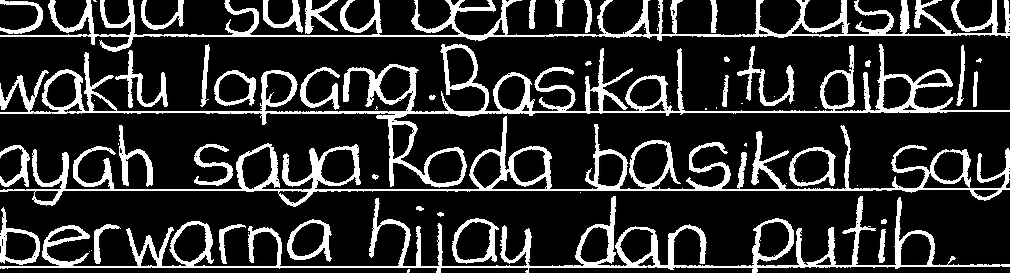 Saya suka bermain basikal
waktu lapang. Basikal itu dibeli
ayah saya. Roda basikal say
berwarna hijau dan putih.